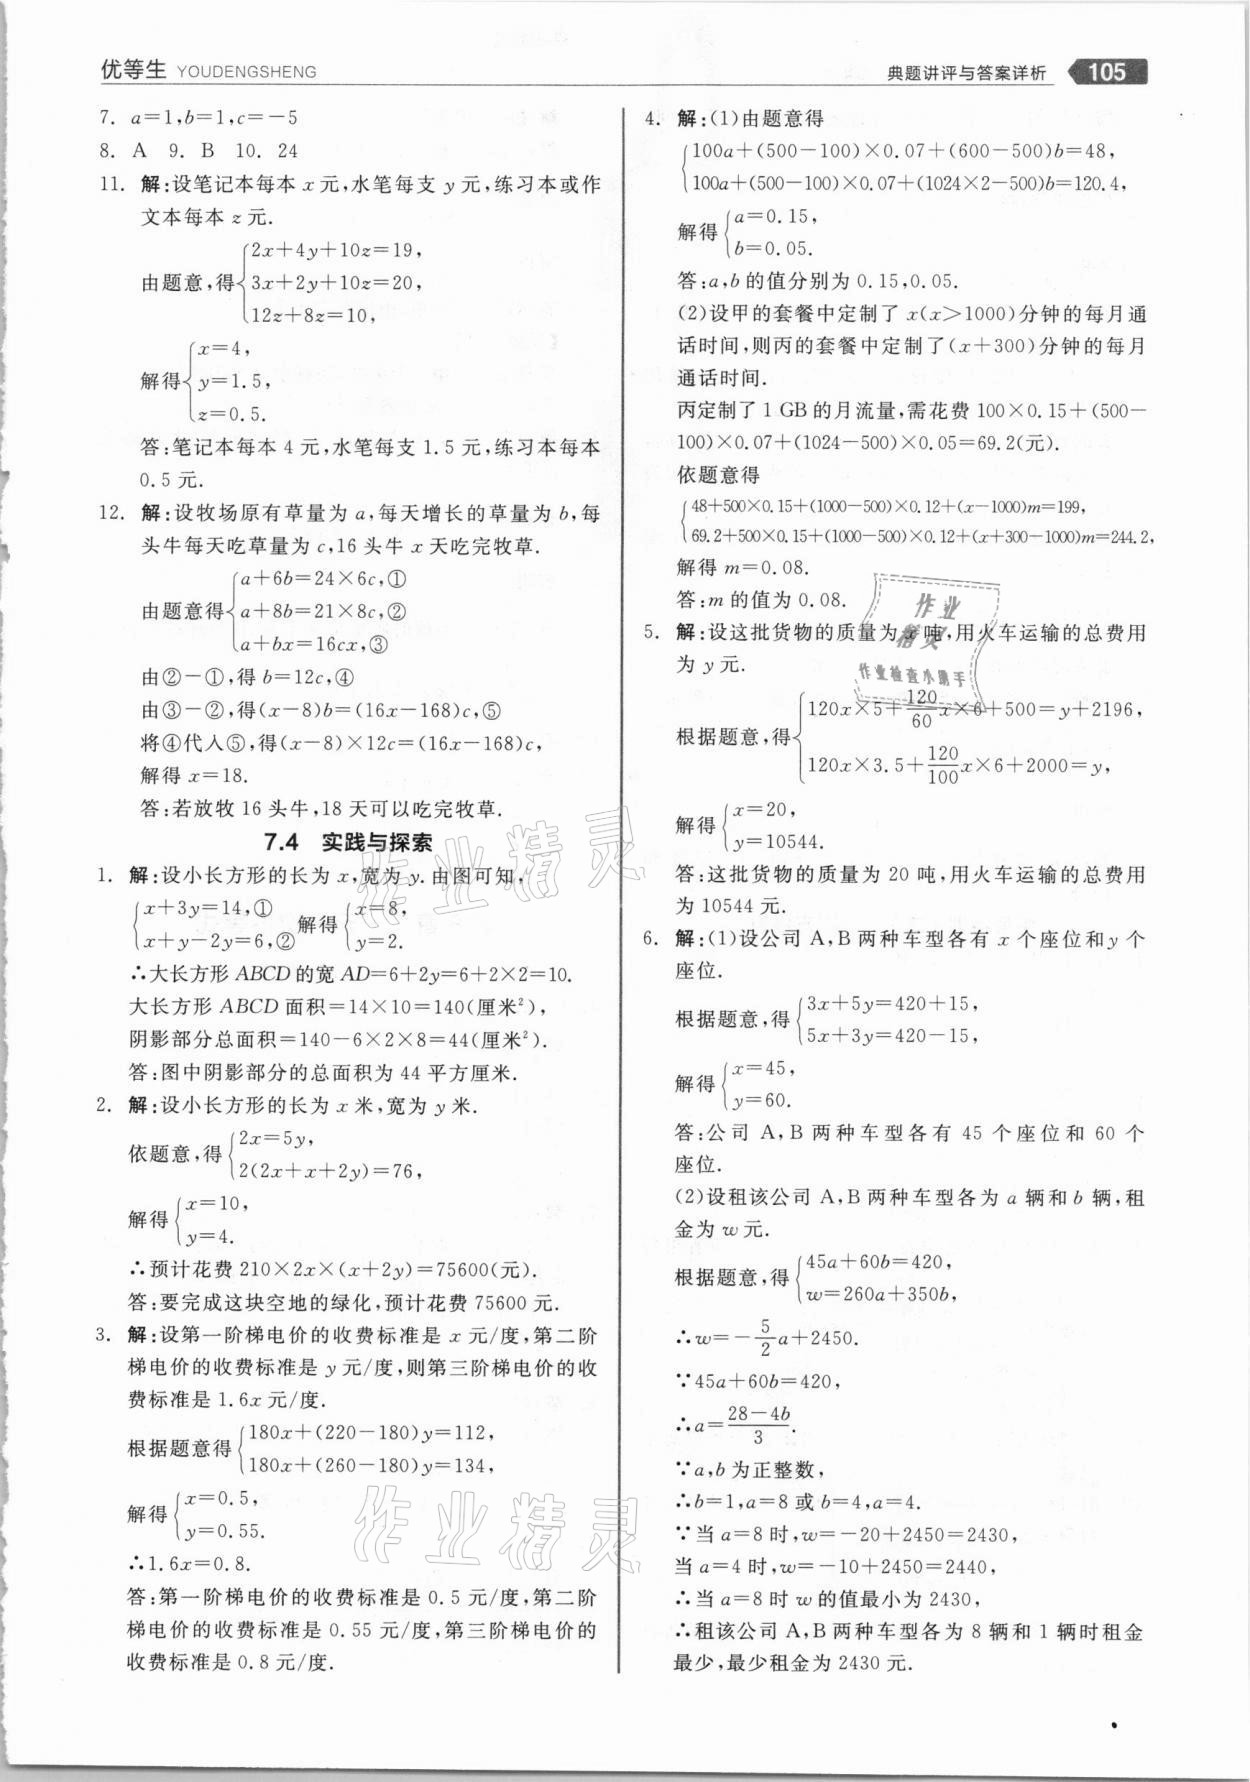 优等生 YOUDENGSHENG
典题讲评与答案详析 105
7. a=1,b=1,c=-5
8. A 9. B 10. 24
11. 解:设笔记本每本 x 元,水笔每支 y 元,练习本或作
文本每本 z 元.
由题意,得{2x+4y+10z=19,
3x+2y+10z=20,
12z+8z=10,
解得{x=4,
y=1.5,
z=0.5.
答:笔记本每本 4 元,水笔每支 1.5 元,练习本每本
0.5 元.
12. 解:设牧场原有草量为 a,每天增长的草量为 b,每
头牛每天吃草量为 c,16 头牛 x 天吃完牧草.
由题意得{a+6b=24×6c,①
a+8b=21×8c,②
a+bx=16cx,③
由②-①,得 b=12c,④
由③-②,得(x-8)b=(16x-168)c,⑤
将④代人⑤,得(x-8)×12c=(16x-168)c,
解得 x=18.
答:若放牧 16 头牛,18 天可以吃完牧草.
7.4 实践与探索
1. 解:设小长方形的长为 x,宽为 y. 由图可知,
{x+3y=14,①
x+y-2y=6,② 解得{x=8,
y=2.
∴大长方形 ABCD 的宽 AD=6+2y=6+2×2=10.
大长方形 ABCD 面积=14×10=140(厘米²),
阴影部分总面积=140-6×2×8=44(厘米²).
答:图中阴影部分的总面积为 44 平方厘米.
2. 解:设小长方形的长为 x 米,宽为 y 米.
依题意,得{2x=5y,
2(2x+x+2y)=76,
解得{x=10,
y=4.
∴预计花费 210×2x×(x+2y)=75600(元).
答:要完成这块空地的绿化,预计花费 75600 元.
3. 解:设第一阶梯电价的收费标准是 x 元/度,第二阶
梯电价的收费标准是 y 元/度,则第三阶梯电价的收
费标准是 1.6x 元/度.
根据题意得{180x+(220-180)y=112,
180x+(260-180)y=134,
解得{x=0.5,
y=0.55.
∴1.6x=0.8.
答:第一阶梯电价的收费标准是 0.5 元/度,第二阶
梯电价的收费标准是 0.55 元/度,第三阶梯电价的
收费标准是 0.8 元/度.
4. 解:(1)由题意得
{100a+(500-100)×0.07+(600-500)b=48,
100a+(500-100)×0.07+(1024×2-500)b=120.4,
解得{a=0.15,
b=0.05.
答:a,b 的值分别为 0.15,0.05.
(2)设甲的套餐中定制了 x(x>1000)分钟的每月通
话时间,则丙的套餐中定制了(x+300)分钟的每月
通话时间.
丙定制了 1 GB 的月流量,需花费 100×0.15+(500-
100)×0.07+(1024-500)×0.05=69.2(元).
依题意得
{48+500×0.15+(1000-500)×0.12+(x-1000)m=199,
69.2+500×0.15+(1000-500)×0.12+(x+300-1000)m=244.2,
解得 m=0.08.
答:m 的值为 0.08.
5. 解:设这批货物的质量为 x 吨,用火车运输的总费用
为 y 元.
根据题意,得{120x×5+120/60x×6+500=y+2196,
120x×3.5+120/100x×6+2000=y,
解得{x=20,
y=10544.
答:这批货物的质量为 20 吨,用火车运输的总费用
为 10544 元.
6. 解:(1)设公司 A,B 两种车型各有 x 个座位和 y 个
座位.
根据题意,得{3x+5y=420+15,
5x+3y=420-15,
解得{x=45,
y=60.
答:公司 A,B 两种车型各有 45 个座位和 60 个
座位.
(2)设租该公司 A,B 两种车型各为 a 辆和 b 辆,租
金为 w 元.
根据题意,得{45a+60b=420,
w=260a+350b,
∴w=-5/2a+2450.
∵45a+60b=420,
∴a=28-4b/3.
∵a,b 为正整数,
∴b=1,a=8 或 b=4,a=4.
∵当 a=8 时,w=-20+2450=2430,
当 a=4 时,w=-10+2450=2440,
∴当 a=8 时 w 的值最小为 2430,
∴租该公司 A,B 两种车型各为 8 辆和 1 辆时租金
最少,最少租金为 2430 元.
作业精灵
作业检查小助手
作业精灵
作业精灵